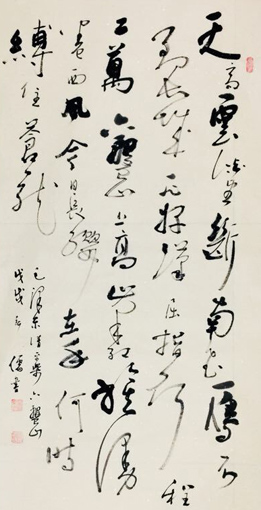 天高雲淡望斷南飛雁不
到長城非好漢屈指行程
二萬六盤山上高峰紅旗漫
卷西風今日長纓在手何時
縛住蒼龍
毛澤東清平樂六盤山
戊戌年